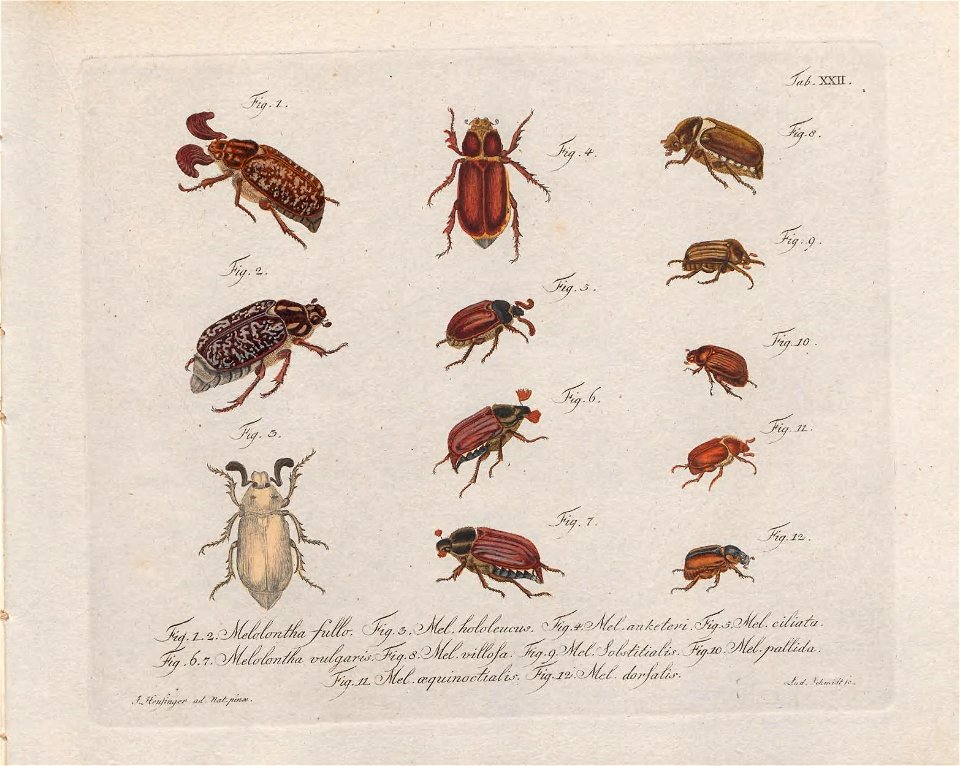 Tab. XXII.
Fig. 1.
Fig. 4.
Fig. 8.
Fig. 9.
Fig. 2.
Fig. 5.
Fig. 10.
Fig. 6.
Fig. 3.
Fig. 11.
Fig. 7.
Fig. 12.
Fig. 1. 2. Melolontha fullo. Fig. 3. Mel. hololeucus. Fig. 4. Mel. anketeri. Fig. 5. Mel. ciliata.
Fig. 6. 7. Melolontha vulgaris. Fig. 8. Mel. villosa. Fig. 9. Mel. Solstitialis. Fig. 10. Mel. pallida.
Fig. 11. Mel. æquinoctialis. Fig. 12. Mel. dorsalis.
J. Heufinger ad Nat. pinx.
Lud. Schmidt sc.